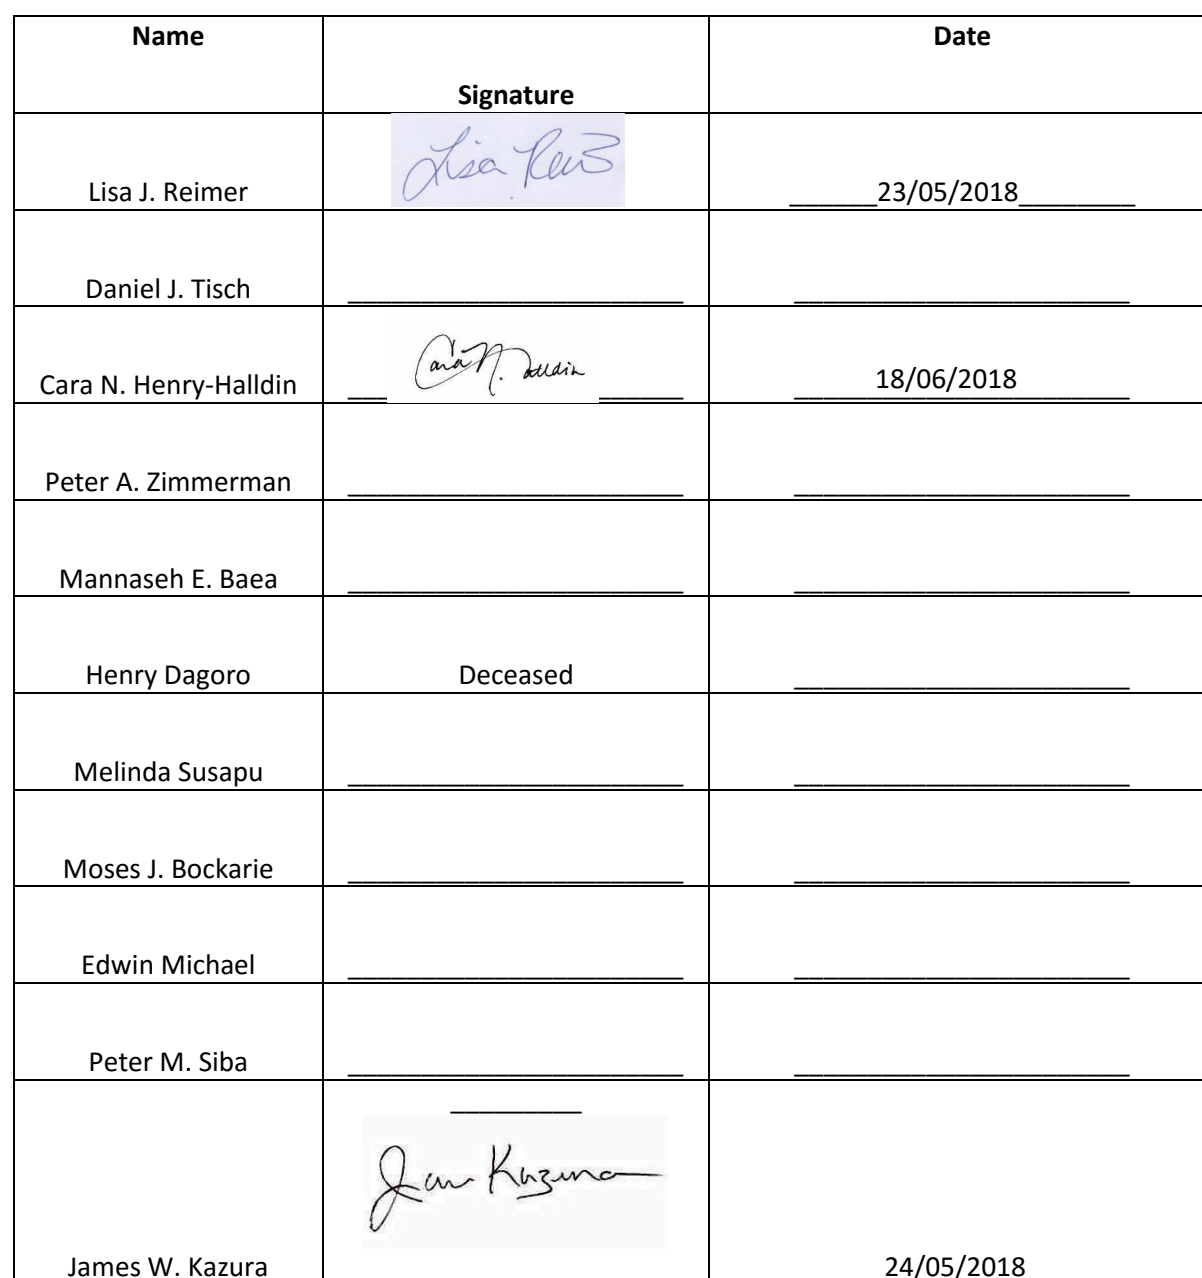 Name Date
Signature
Lisa Rei
Lisa J. Reimer ______23/05/2018________
Daniel J. Tisch _______________________ _______________________
Cara N. Halldin
Cara N. Henry-Halldin _______________________ 18/06/2018
Peter A. Zimmerman _______________________ _______________________
Mannaseh E. Baea _______________________ _______________________
Henry Dagoro Deceased _______________________
Melinda Susapu _______________________ _______________________
Moses J. Bockarie _______________________ _______________________
Edwin Michael _______________________ _______________________
Peter M. Siba _______________________ _______________________
_________
Kazura
James W. Kazura 24/05/2018